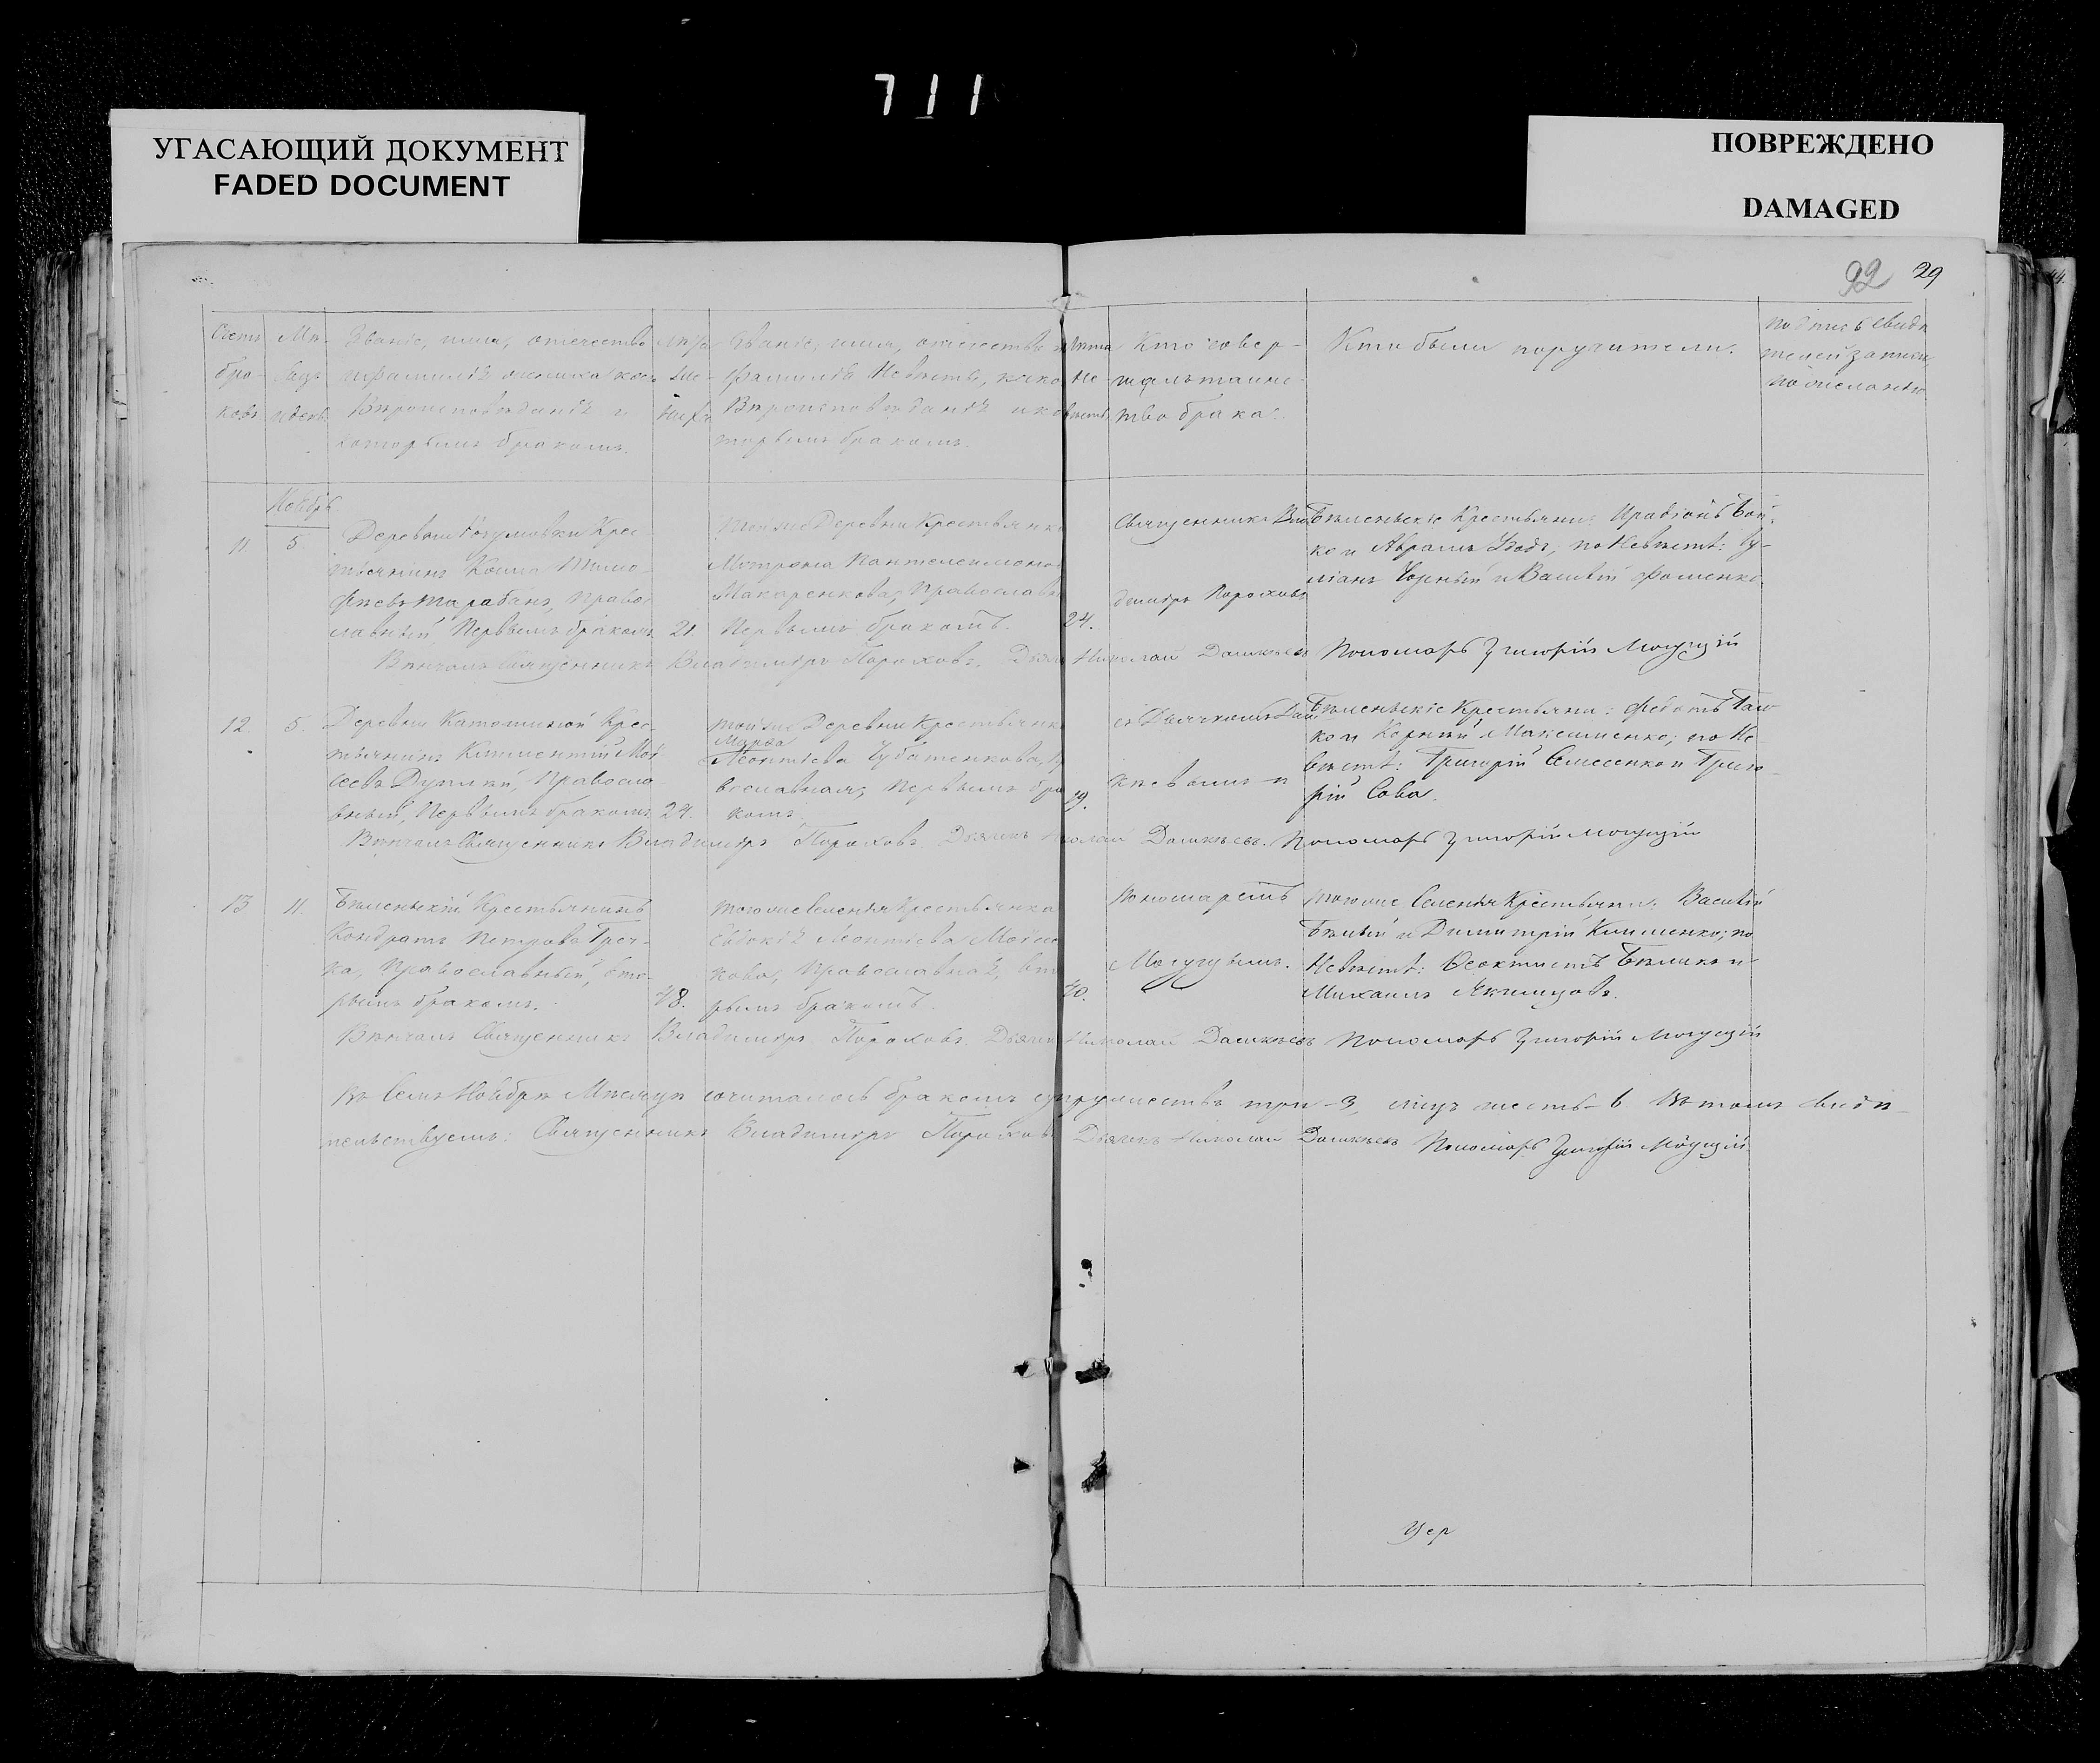 711
УГАСАЮЩИЙ ДОКУМЕНТ
FADED DOCUMENT
ПОВРЕЖДЕНО
DAMAGED
92 29
Счетъ
бра-
ковъ
Мѣ-
сяцъ
и день
Званіе, имя, отечество
фамилія жениха, кое-
Вѣроисповѣданія и
которымъ бракомъ.
Лѣта
Же-
ниха
Званіе, имя, отечество и
фамилія Невѣсты, како
Вѣроисповѣданія и ко
торымъ бракомъ.
Лѣта
Не-
вѣсты
Кто совер-
шалъ таинс-
тво брака.
Кто были поручители.
подпись свидѣ
телей записи
по желанію
Ноябрь
11
5
Деревни Разумовки Крес-
тьянинъ Косма Тимо-
Фѣевъ Тарабанъ, Право-
славный, Первымъ бракомъ
21.
тойже Деревни Крестьянка
Матрона Пантелеимоно
Макаренкова, Православн
Первымъ бракомъ.
24.
Священникъ Вла
димиръ Пороховъ
Бѣленьскіе Крестьяни: Иродіонъ Бой-
ко и Аврамъ; по Невѣстѣ:
Чорный и Василій Фоменко.
Вѣнчалъ Священникъ Владимиръ Пороховъ. Дьячк Николай Дашкѣевъ Пономарь Григорій Могущій
12.
5.
Деревни Катещиной Крес-
тьянинъ Климентій Мой
сеевъ, Правосла-
вный, Первымъ бракомъ,
24.
тойже Деревни Крестьянка
Марфа
Леонтіева Чубатенкова, П
вославная, Первымъ бра
комъ.
19.
съ Дьячкомъ Даш
кѣевымъ и
Бѣленьскіе Крестьяни: Федотъ
ко и Корній Максименко; по Не-
вѣстѣ: Григорій Семесенко и Григо-
рій Сова.
Вѣнчалъ Священникъ Владимиръ Пороховъ. Дьячкъ Николай Дашкѣевъ. Пономарь Григорій Могущій
13
11.
Бѣленьскій Крестьянинъ
Кондратъ Петровъ Греч-
ка, Православный, вто-
рымъ бракомъ.
48.
тогоже Селенія Крестьянка
Евдокія Леонтіева Мойсе
кова, Православная, вто
рымъ бракомъ.
40.
Пономаремъ
Могущымъ.
тогоже Селенія Крестьяни: Василій
Бѣлый и Димитрій Клименко; по
Невѣстѣ: Феоктистъ Бѣликъ и
Михаилъ Якимцовъ.
Вѣнчалъ Священникъ Владимиръ Пороховъ. Дьячк Николай Дашкѣевъ Пономарь Григорій Могущій
Въ Семъ Ноябрѣ Мѣсяцѣ сочиталось бракомъ супружествъ три - 3, лицъ шесть - 6 Въ томъ свидѣ-
тельствуемъ: Священникъ Владимиръ Пороховъ Дьячкъ Николай Дашкѣевъ Пономарь Григорій Могущій